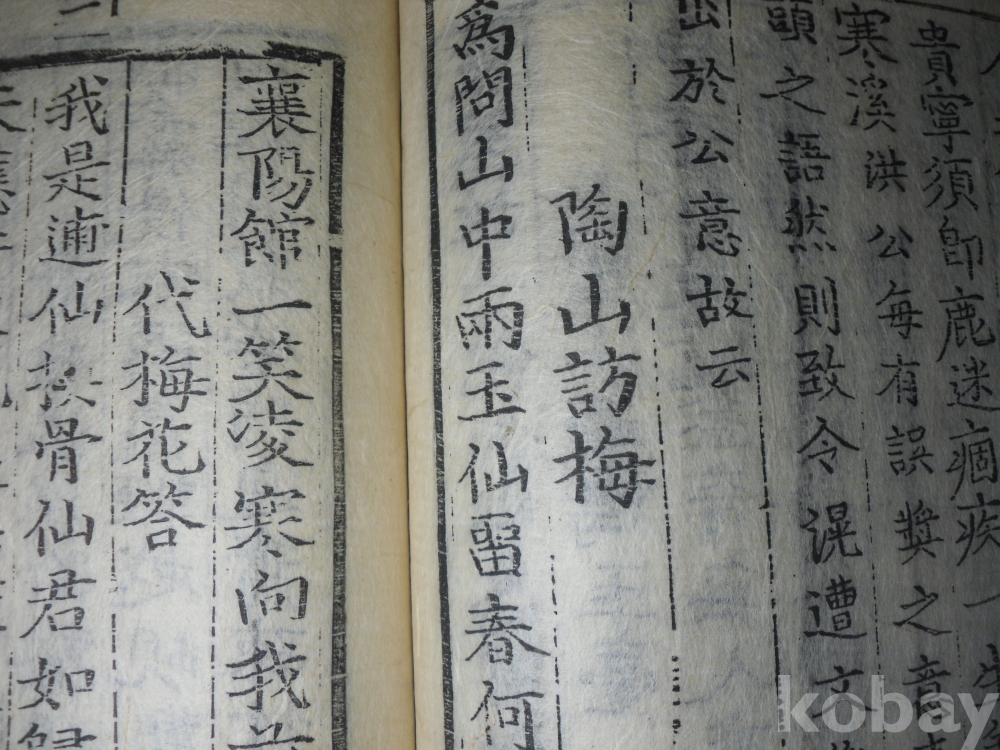 貴寧須卽鹿迷痼疾一
寒溪洪公每有誤奬之音
頤之語然則致令滉遭文
出於公意故云
陶山訪梅
爲問山中兩玉仙留春何
襄陽館一笑凌寒向我前
代梅花答
我是逋仙換骨仙君如歸
kobay